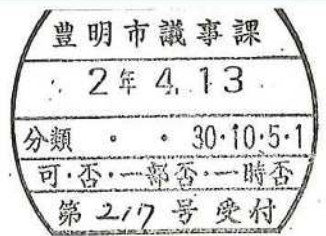 豊明市議事課
2年 4. 13
分類 ・ ・ 30・10・5・1
可・否・一部否・一時否
第 217 号 受付